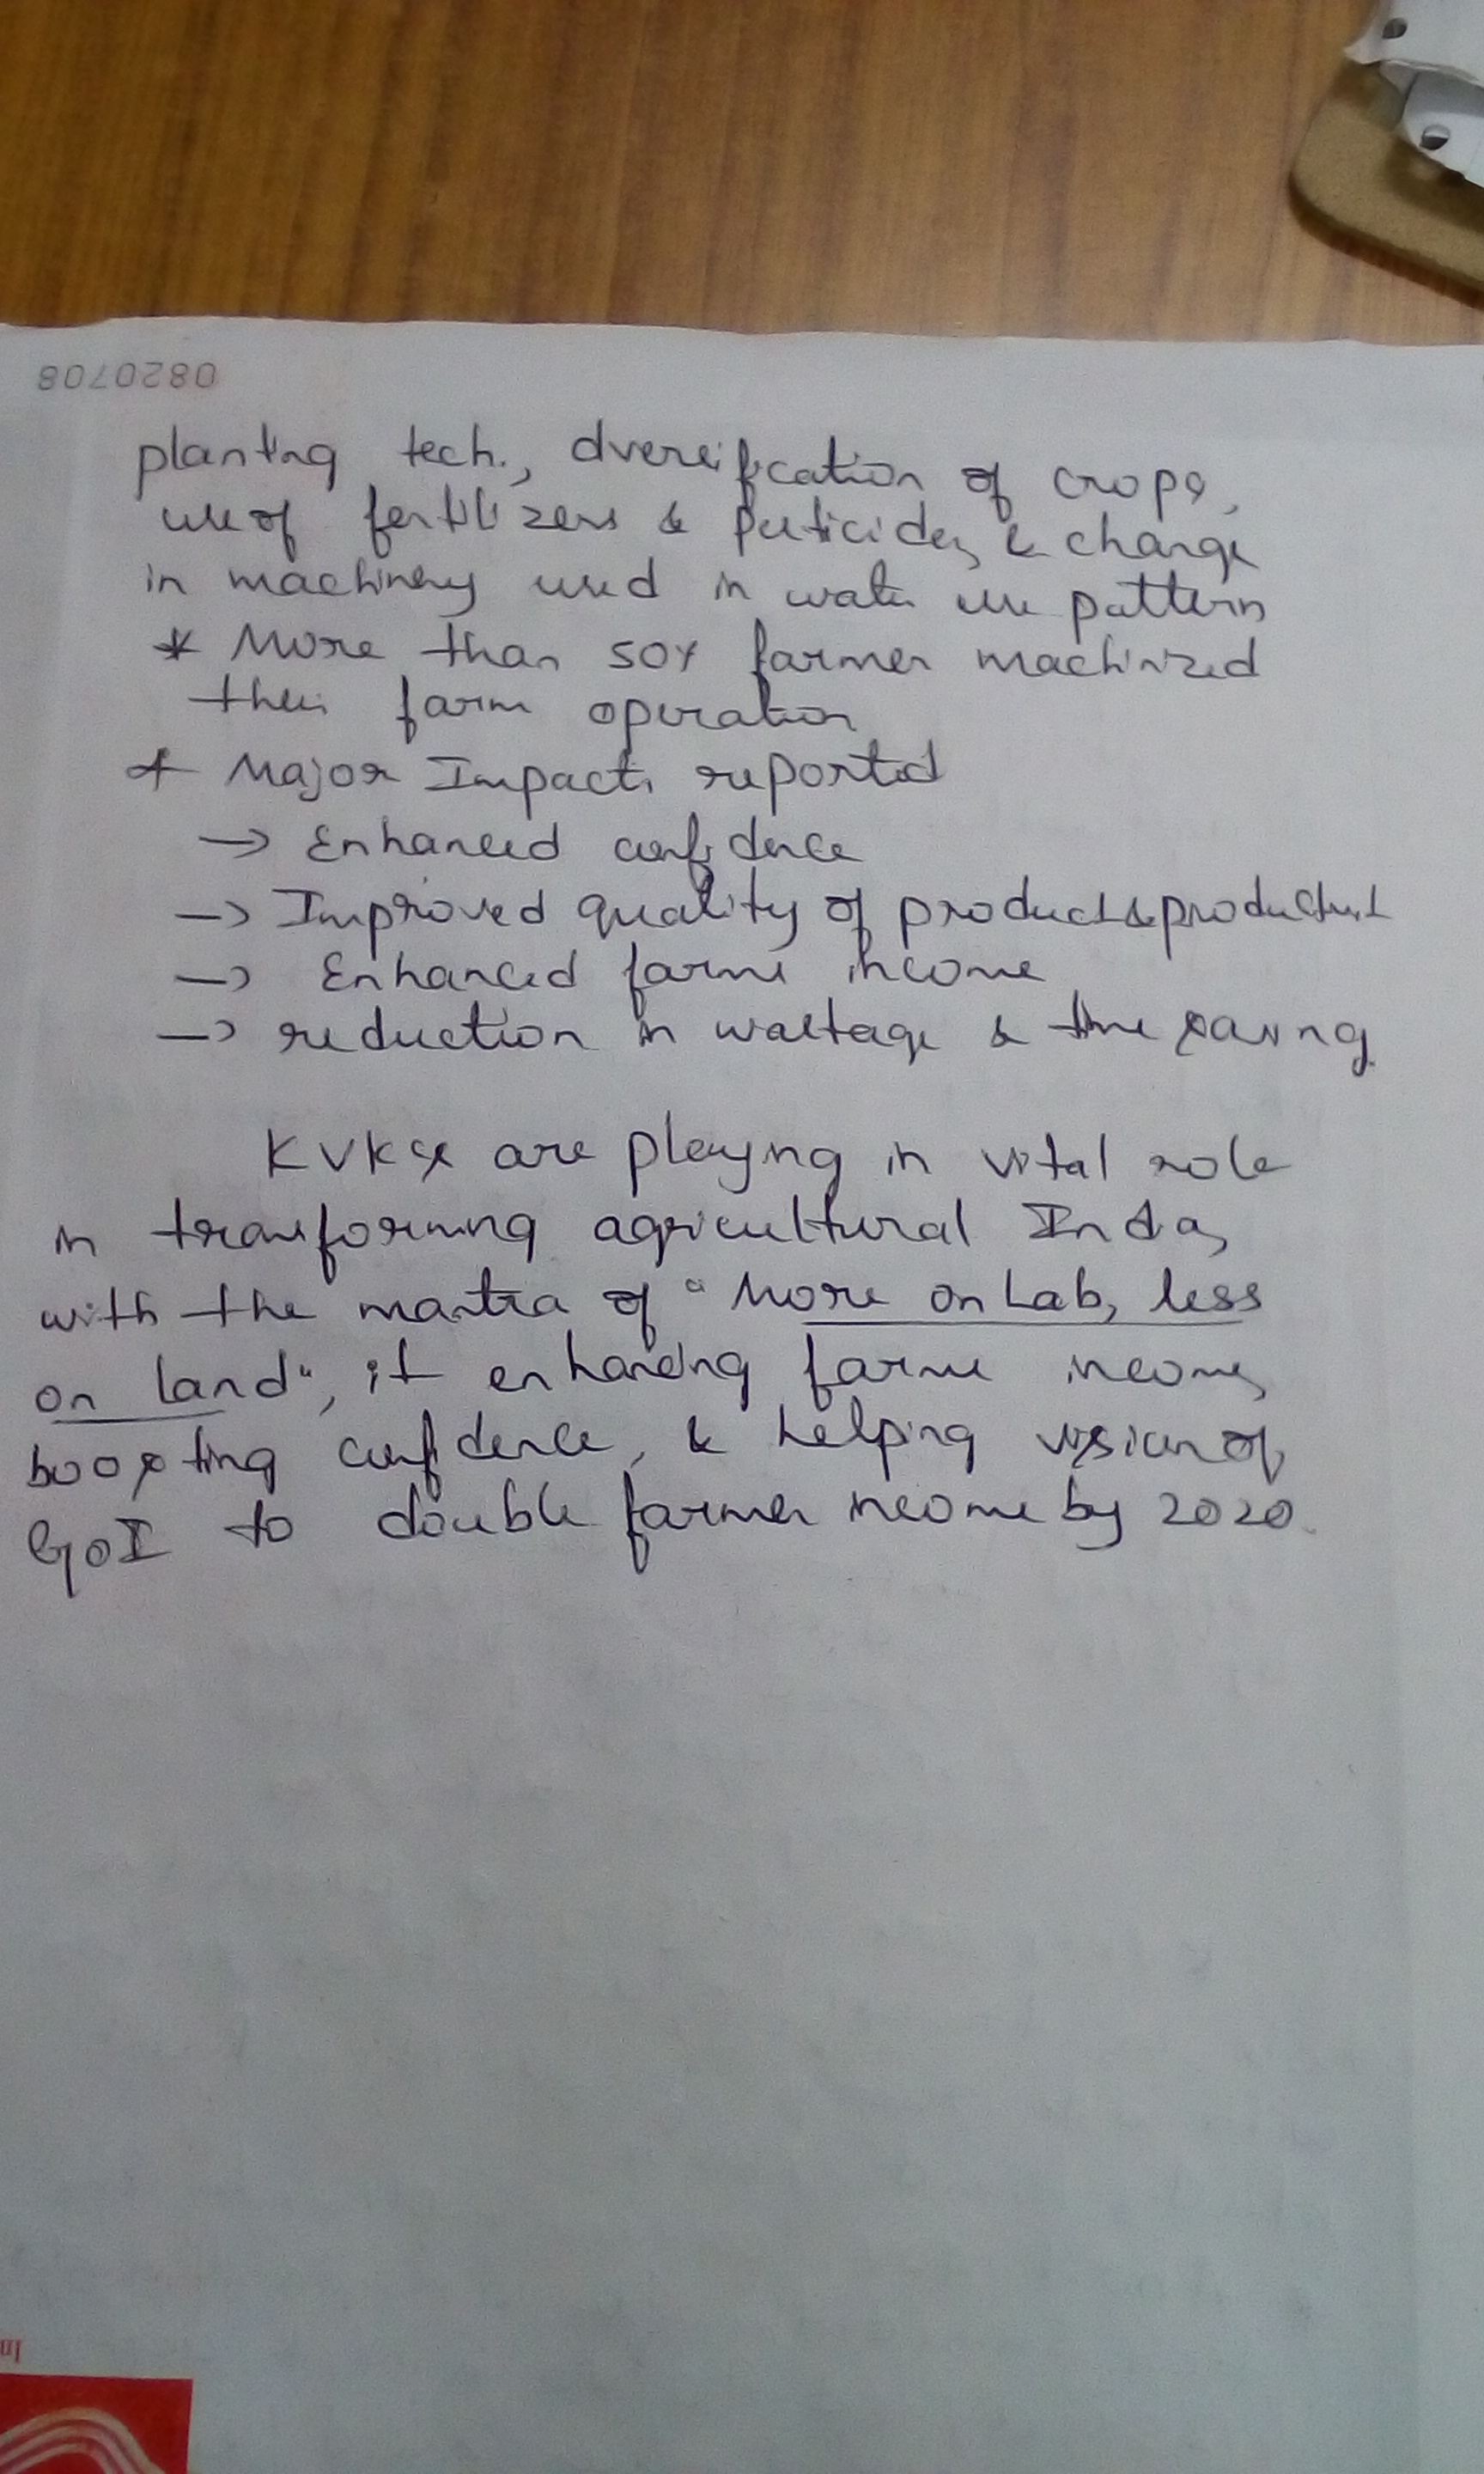 0820708
planting tech., diversification of crops,
use of fertilizers & pesticides, & change
in machinery used in water use pattern
* More than 50% farmer machinized
their farm operation
* Major Impacts reported
→ Enhanced confidence
→ Improved quality of product &
→ Enhanced farm income
→ reduction in wastage & time saving
KVKs are playing in vital role
in transforming agricultural India,
with the mantra of "More on Lab, less
on land", it enhancing farm income,
boosting confidence, & helping vision of
GOI to double farmer income by 2020.
In